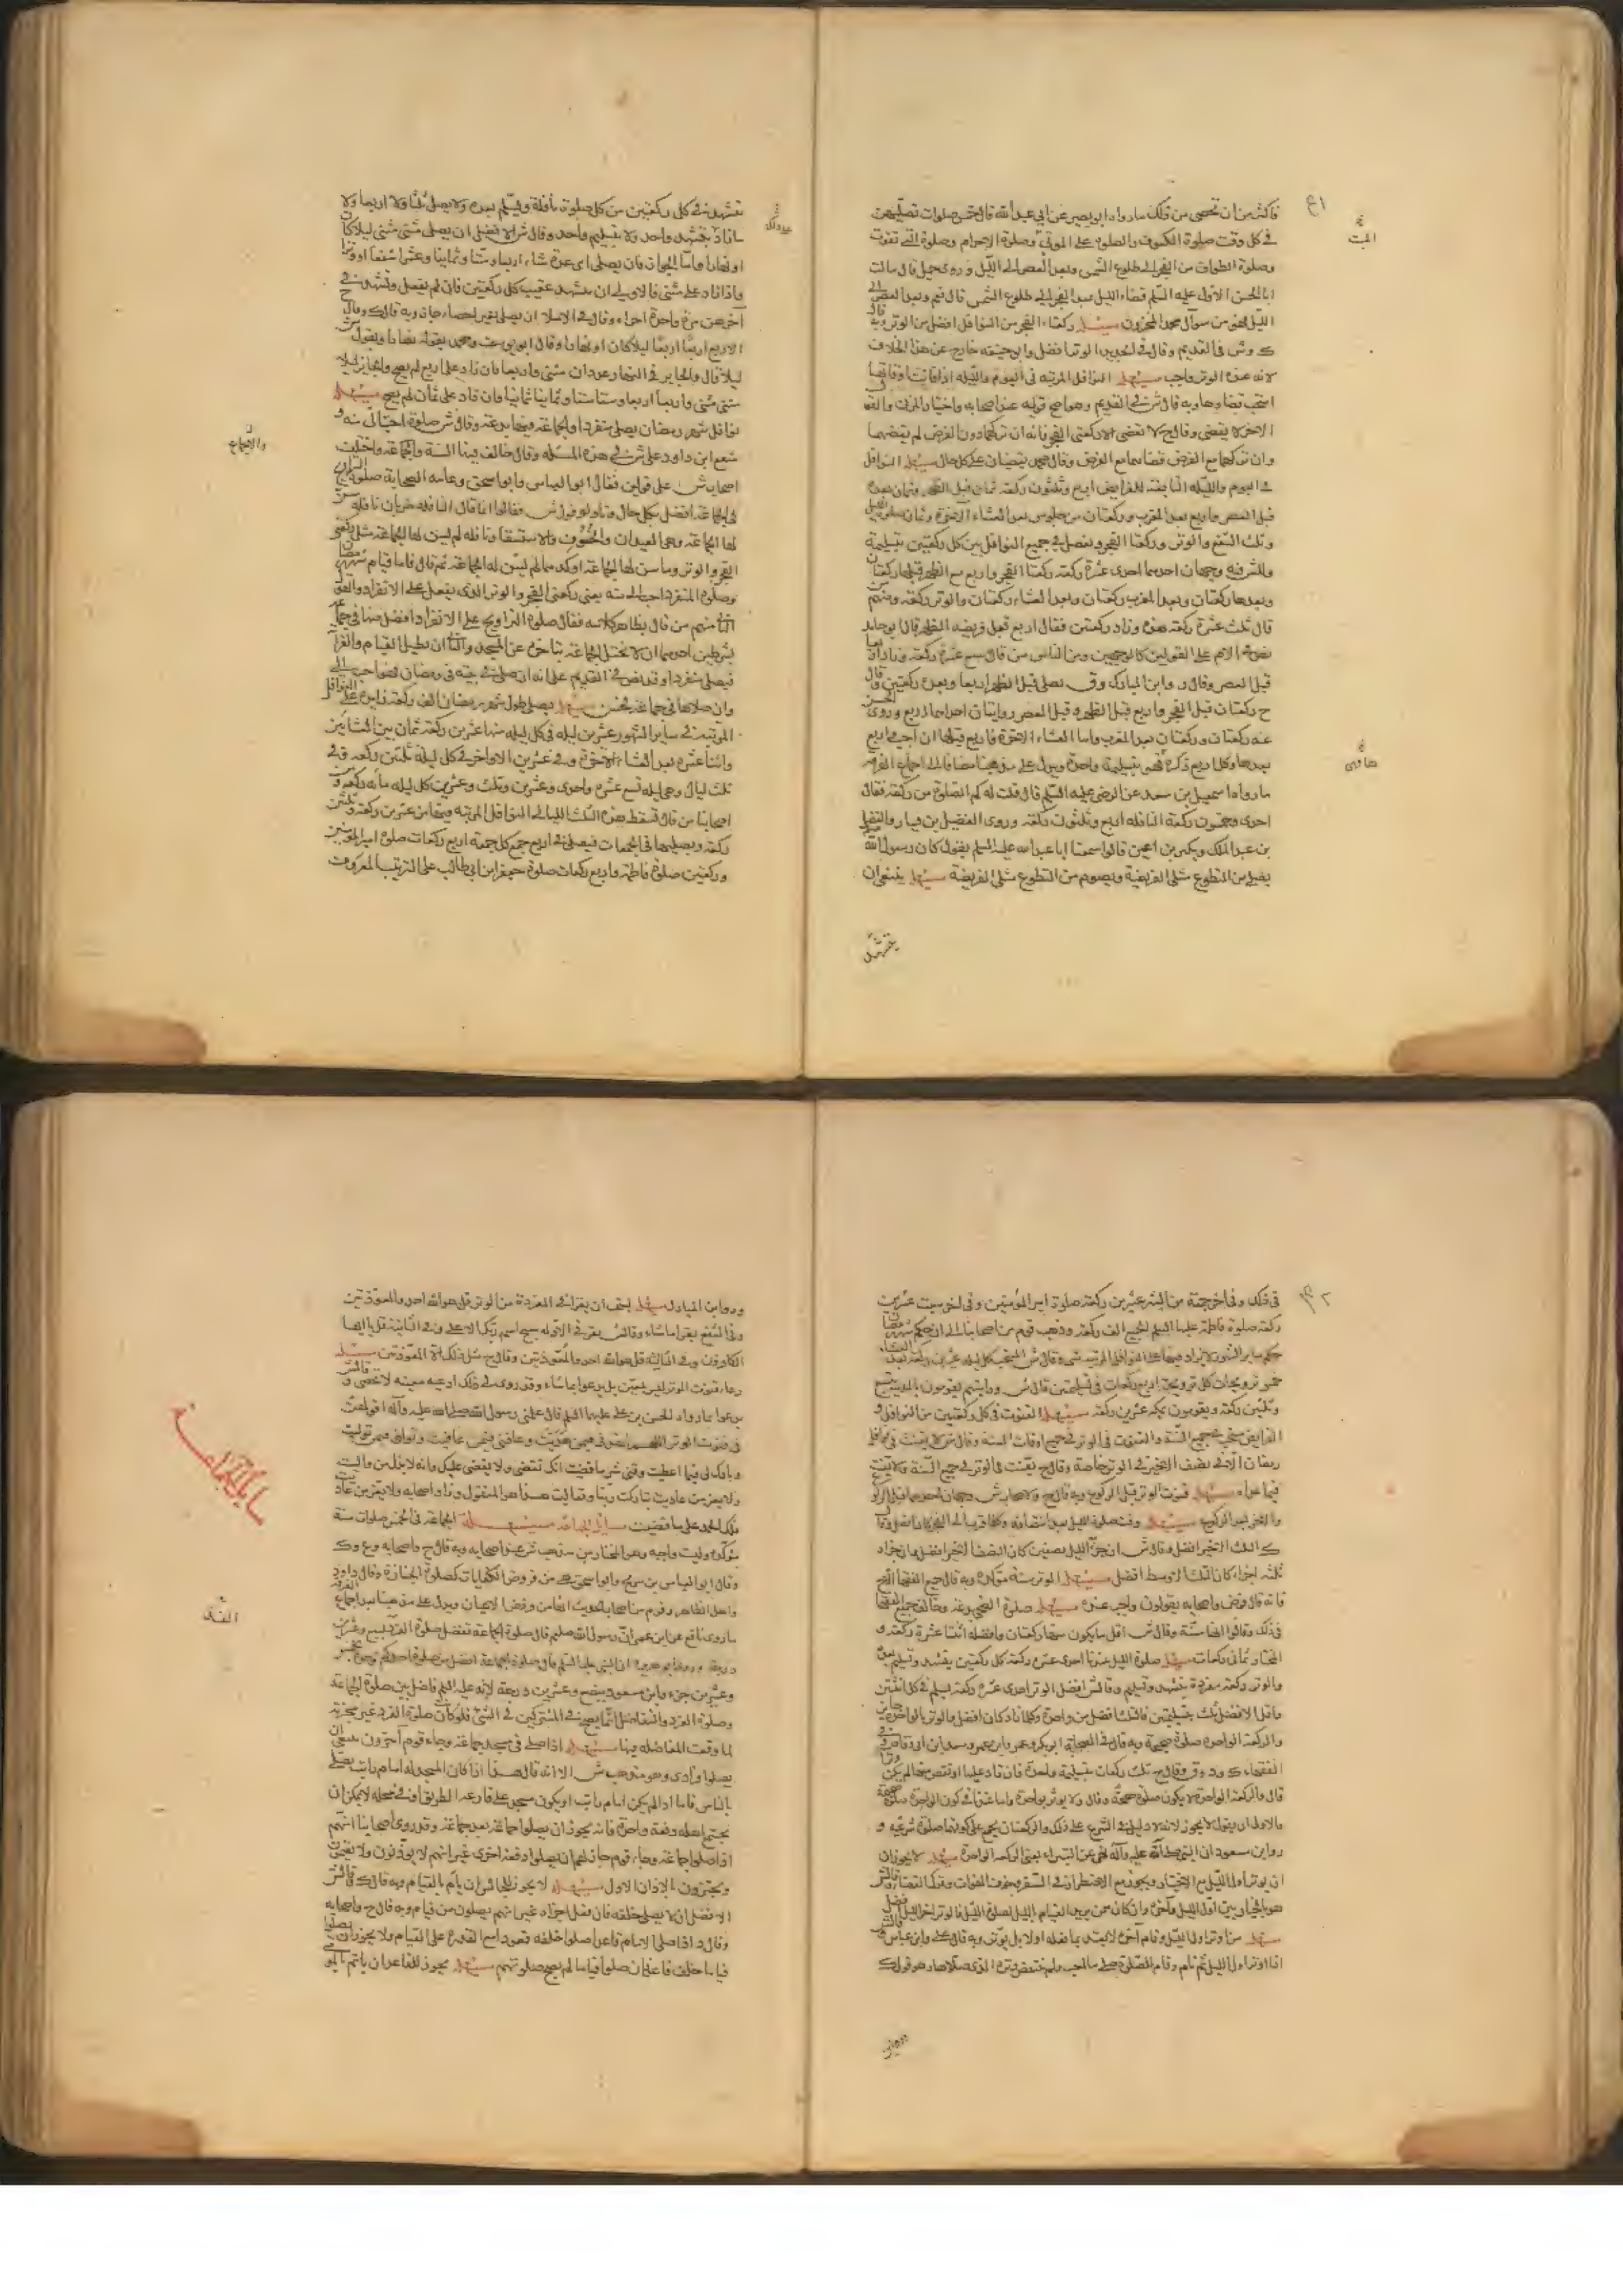 فاكثر من ان تحصى من ذلك ما رواه ابو بصير عن ابي عبد الله قال خمس صلوات تصليهن
في كل وقت صلوة الكسوف والصلوة على الموتى وصلوة الاحرام وصلوة التي تفوت
وصلوة الطواف من الفجر الى طلوع الشمس وبعد العصر الى الليل وروى جميل قال سالت
ابا الحسن الاول عليه السلم قضاء الليل بعد الفجر الى طلوع الشمس قال نعم وبعد العصر الى
الليل فهو من سر آل محمد المخزون مسئلة ركعتا الفجر من النوافل افضل من الوتر وبه قال
ك وش في القديم وقال في الجديد الوتر افضل وابو حنيفة خارج عن هذا الخلاف
لانه عنده الوتر واجب مسئلة النوافل المرتبه في اليوم والليله اذا فاتت اوقاتها
استحب قضاؤها وبه قال ش في القديم وهو اصح قوليه عند اصحابه واختيار المزني والقول
الاخر لا يقضى وقال ح لا تقضى الا ركعتي الفجر فانه ان تركهما دون الفرض لم يقضهما
وان تركهما مع الفرض قضاهما مع الفرض وقال محمد يقضيان على كل حال مسئلة النوافل
في اليوم والليله التابعة للفرايض اربع وثلثون ركعة ثمان قبل الظهر وثمان بعده
قبل العصر واربع بعد المغرب وركعتان من جلوس بعد العشاء الاخرة وثمان صلوة الليل
وثلث الشفع والوتر وركعتا الفجر ويفصل في جميع النوافل بين كل ركعتين بتسليمة
وللشرفيه وجهان احدهما احدى عشرة ركعة ركعتا الفجر واربع مع الظهر قبلها ركعتان
وبعدها ركعتان وبعد المغرب ركعتان وبعد العشاء ركعتان والوتر ركعة ومنهم من
قال ثلث عشرة ركعة هذه وزاد ركعتين فقال اربع قبل فريضه الظهر قال ابو حامد
قبل العصر وقال ر وابن المبارك وق يصلى قبل الظهر اربعا وبعده ركعتين وقال
ح ركعتان قبل الفجر واربع قبل الظهر وقبل العصر روايتان احدهما اربع وروى الحسن
عنه ركعتان وركعتان بعد المغرب واما العشاء الاخرة فاربع قبلها ان احب واربع
بعدها وكل اربع ذكره فهي بتسليمة واحدة ويدل على مذهبنا مضافا الى اجماع الفرقه
ما رواه اسمعيل بن سعد عن الرضي عليه السلم قال قلت له كم الصلوة من ركعة فقال
احدى وخمسون ركعة النافله اربع وثلثون ركعة وروى الفضيل بن يسار والفضل
بن عبد الملك وبكير بن اعين قالوا سمعنا ابا عبد الله عليه السلم يقول كان رسول الله
يصلي من التطوع مثلي الفريضة ويصوم من التطوع مثلي الفريضة مسئلة ينبغي ان
يتشهد
يتشهد في كل ركعتين من كل صلوة نافلة ويسلم بعده ولا يصلى ثلثا ولا اربعا ولا
ما زاد بتشهد واحد ولا بتسليم واحد وقال ش الافضل ان يصلى مثنى مثنى ليلا كان
او نهارا واما الجواز فان يصلى اى عدد شاء اربعا وستا وثمانيا وعشرا شفعا او وترا
واذا زاد على مثنى فالاولى ان يتشهد عقيب كل ركعتين فان لم يفعل وتشهد في
آخرهن مرة واحدة اجزاه وقال في الاملا ان يصلى بغير احصاء جاز وبه قال ك وقال ح
الاربع اربعا اربعا ليلا كان او نهارا وقال ابو يوسف ومحمد بقوله نهارا وبقول ش
ليلا قال والجايز في النهار عددان مثنى واربعا فان زاد على اربع لم يصح والجايز ليلا
مثنى مثنى واربعا اربعا وستا ستا وثمانيا ثمانيا وان زاد على ثمان لم يصح مسئلة
نوافل شهر رمضان يصلى منفردا والجماعة فيها بدعة وقال ش صلوة المنفرد احب الى منه و
شنع ابن داود على ش في هذه المسئلة وقال خالف فيها السنة والجماعة واختلف
اصحاب ش على قولين فقال ابو العباس وابو اسحق وعامه الصحابة صلوة التراويح
في الجماعة افضل بكل حال وتاولوا قول ش فقالوا انما قال النافلة ضربان نافلة سن
لها الجماعة وهي العيدان والخسوف والاستسقاء ونافلة لم يسن لها الجماعة مثل ركعتي
الفجر والوتر وما سن لها الجماعة اوكد مما لم يسن له الجماعة ثم قال فاما قيام شهر رمضان
وصلوة المنفرد احب الى منه يعنى ركعتي الفجر والوتر الذى يفعل على الانفراد والقول
الثاني منهم من قال بظاهر كلامه فقال صلوة التراويح على الانفراد افضل منها في جماعة
بشرطين احدهما ان لا تختل الجماعة بتاخره عن المسجد والثاني ان يطيل القيام والقراة
فيصلى منفردا وقد نص في القديم على انه ان صلى في بيته في رمضان فهو احب الى
وان صلاها في جماعة فحسن مسئلة يصلى طول شهر رمضان الف ركعة زايدا على النوافل
المرتبة في ساير الشهور عشرين ليله في كل ليله منها عشرين ركعة ثمان بين العشائين
واثنا عشرة بعد العشاء الاخرة وفي عشرين الاواخر في كل ليلة ثلثين ركعة وفي
ثلث ليال وهي ليله تسع عشرة واحدى وعشرين وثلث وعشرين كل ليله مائه ركعة ومن
اصحابنا من قال تسقط هذه الثلث الليالي النوافل المرتبه فيها من عشرين ركعة وثلثين
ركعة ويصليها في الجمعات فيصلى في اربع جمع كل جمعة اربع ركعات صلوة امير المؤمنين
وركعتين صلوة فاطمة واربع ركعات صلوة جعفر ابن ابي طالب على الترتيب المعروف
والاجماع
في ذلك وفي اخر جمعة من الشهر عشرين ركعة صلوة امير المؤمنين وفي اخر سبت عشرين
ركعة صلوة فاطمة عليها السلم الجميع الف ركعة وذهب قوم من اصحابنا الى ان حكم شهر رمضان
حكم ساير الشهور لا يزاد فيها على النوافل المرتبه شى وقال ش المستحب كل ليلة عشرين ركعة بعد العشاء
خمس ترويحات كل ترويحة اربع ركعات في تسليمتين قال ش ورايتهم يقومون بالمدينة بتسع
وثلثين ركعة ويقومون بمكه عشرين ركعة مسئلة القنوت في كل ركعتين من النوافل و
الفرايض مستحب في جميع السنة والقنوت في الوتر في جميع اوقات السنة وقال ش لا يقنت في نوافل
رمضان الا في نصف الاخير في الوتر خاصة وقال ح يقنت في الوتر في جميع السنة ولا يقنت
فيما عداه مسئلة قنوت الوتر قبل الركوع وبه قال ح ولاصحاب ش وجهان احدهما قبل الركوع
والاخر بعد الركوع مسئلة وقت صلوة الليل بعد انتصافه وكلما قرب الى الفجر كان افضل وقال
ك الثلث الاخير افضل وقال ش ان جزّء الليل نصفين كان النصف الاخير افضل وان جزاه
ثلثه اجزاء كان الثلث الاوسط افضل مسئلة الوتر سنة مؤكدة وبه قال جميع الفقهاء الا ح
فانه قال فرض واصحابه يقولون واجب عنده مسئلة صلوة الضحى بدعة وخالف جميع الفقهاء
في ذلك وقالوا انها سنة وقال ش اقل ما يكون منها ركعتان وافضله اثنتا عشرة ركعة و
المختار ثماني ركعات مسئلة صلوة الليل عندنا احدى عشرة ركعة كل ركعتين بتشهد وتسليم بعده
والوتر ركعة مفردة بتشهد وتسليم وقال ش افضل الوتر احدى عشرة ركعة يسلم في كل اثنتين
واقل الافضل ثلث بتسليمتين فالثلث افضل من واحدة وكلما زاد كان افضل والوتر بالواحدة جايز
والركعة الواحدة صلوة صحيحة وبه قال في الصحابة ابو بكر وعمر وابن عمر وسعد بن ابي وقاص وفي
قال والركعة الواحدة لا يكون صلوة صحيحة وقال ر لا يوتر بواحدة واما عندنا في كون الواحدة صلوة صحيحة
والاولى ان يقول لا يجوز لانه لا دليل في الشرع على ذلك والركعتان مجمع على كونها صلوة شرعيه و
روى ابن مسعود ان النبي صلى الله عليه وآله نهى عن البتيراء يعنى الركعة الواحدة مسئلة لا يجوز ان
ان يوتر اول الليل مع الاختيار ويجوز مع الاضطرار وفي السفر وخوف الفوات وترك القضاء وقال ش
هو بالخيار بين اول الليل وآخره وان كان ممن يريد القيام بالليل لصلوة الليل فالوتر اخر الليل افضل
مسئلة من اوتر اول الليل وقام آخره لا يعتد بما فعله اولا بل يوتر وبه قال على وابن عباس وقال ش
اذا اوتر اول الليل ثم نام وقام للصلوة صلى ما احب ولم ينتقض وتره الذى صلاها وهو قول ك
ور وابن المبارك مسئلة يستحب ان يقرا في المفردة من الوتر قل هو الله احد والمعوذتين
وفي الشفع يقرا ما شاء وقال ش يقرا في الاولة سبح اسم ربك الاعلى وفي الثانية قل يا ايها
الكافرون وفي الثالثة قل هو الله احد والمعوذتين وقال ح مثل ذلك الا المعوذتين مسئلة
دعاء قنوت الوتر ليس بمعين بل يدعوا بما شاء وقد روى في ذلك ادعيه معينه لا تحصى وقال ش
يدعوا بما رواه الحسن بن على عليهما السلم قال علمنى رسول الله صلى الله عليه وآله اقوالهن
في قنوت الوتر اللهم اهدنى فيمن هديت وعافنى فيمن عافيت وتولنى فيمن توليت
وبارك لى فيما اعطيت وقنى شر ما قضيت انك تقضى ولا يقضى عليك وانه لا يذل من واليت
ولا يعز من عاديت تباركت ربنا وتعاليت هذا هو المنقول وزاد اصحابه ولا يعز من عاديت
فلك الحمد على ما قضيت مسائل الجماعة مسئلة الجماعة في الخمس صلوات سنة
مؤكدة وليست واجبه وهو المختار من مذهب ش عند اصحابه وبه قال ح واصحابه و ع و ك
وقال ابو العباس بن سريج وابو اسحق هي من فروض الكفايات كصلوة الجنازة وقال داود
واهل الظاهر وقوم من اصحاب الحديث انها من فروض الاعيان ويدل على مذهبنا بعد اجماع الفرقة
ما روى نافع عن ابن عمر ان رسول الله صلعم قال صلوة الجماعة تفضل صلوة الفذ بسبع وعشرين
درجة وروى ابو هريرة ان النبي عليه السلم قال صلوة الجماعة افضل من صلوة احدكم وحده بخمس
وعشرين جزء وابن مسعود ببضع وعشرين درجة لانه عليه السلم فاضل بين صلوة الجماعة
وصلوة الفرد والتفاضل انما يصح في المشتركين في الشئ فلو كان صلوة الفرد غير مجزئة
لما وقعت المفاضله فيها مسئلة اذا صلى في مسجد جماعة وجاء قوم آخرون ينبغى ان
يصلوا فرادى وهو مذهب ش الا انه قال هذا اذا كان المسجد له امام راتب يصلى
بالناس فاما اذا لم يكن امام راتب او يكون مسجد على قارعة الطريق او في محله لا يمكن ان
يجتمع اهله دفعة واحدة فانه يجوز ان يصلوا جماعة بعد جماعة وقد روى اصحابنا انهم
اذا صلوا جماعة وجاء قوم جاز لهم ان يصلوا دفعة اخرى غير انهم لا يوذنون ولا يقيمون
ويجتزون بالاذان الاول مسئلة لا يجوز للجالس ان يأم بالقيام وبه قال ك وقال ش
الافضل ان لا يصلى خلفه فان فعل اجزاه غير انهم يصلون من قيام وبه قال ح واصحابه
وقال د اذا صلى الامام قاعدا صلوا خلفه قعودا مع القدرة على القيام ولا يجوز ان يصلوا
قياما خلف قاعد فان صلوا قياما لم يصح صلوتهم مسئلة يجوز للقاعد ان ياتم بالمومى
الفذ
مسائل الجماعة